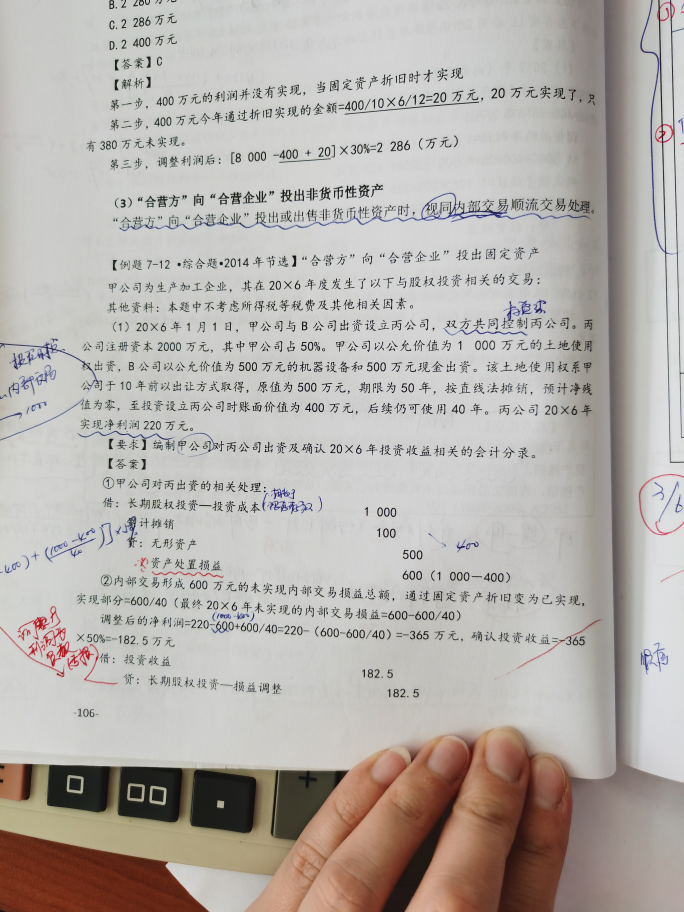 B. 2 280 万元
C. 2 286 万元
D. 2 400 万元
【答案】C
【解析】
第一步，400 万元的利润并没有实现，当固定资产折旧时才实现
第二步，400 万元今年通过折旧实现的金额=400/10×6/12=20 万元，20 万元实现了，只
有 380 万元未实现。
第三步，调整利润后：[8 000 -400 + 20]×30%=2 286（万元）
（3）“合营方”向“合营企业”投出非货币性资产
“合营方”向“合营企业”投出或出售非货币性资产时，视同内部交易顺流交易处理。
【例题 7-12 •综合题•2014 年节选】“合营方”向“合营企业”投出固定资产
甲公司为生产加工企业，其在 20×6 年度发生了以下与股权投资相关的交易：
其他资料：本题中不考虑所得税等税费及其他相关因素。
（1）20×6 年 1 月 1 日，甲公司与 B 公司出资设立丙公司，双方共同控制丙公司。丙
公司注册资本 2000 万元，其中甲公司占 50%。甲公司以公允价值为 1 000 万元的土地使用
权出资，B 公司以公允价值为 500 万元的机器设备和 500 万元现金出资。该土地使用权系甲
公司于 10 年前以出让方式取得，原值为 500 万元，期限为 50 年，按直线法摊销，预计净残
值为零，至投资设立丙公司时账面价值为 400 万元，后续仍可使用 40 年。丙公司 20×6 年
实现净利润 220 万元。
【要求】编制甲公司对丙公司出资及确认 20×6 年投资收益相关的会计分录。
【答案】
①甲公司对丙出资的相关处理：
借：长期股权投资—投资成本 1 000
累计摊销 100
贷：无形资产 500
400
资产处置损益 600（1 000—400）
②内部交易形成 600 万元的未实现内部交易损益总额，通过固定资产折旧变为已实现，
实现部分=600/40（最终 20×6 年未实现的内部交易损益=600-600/40）
(1000-400)
调整后的净利润=220-600+600/40=220-（600-600/40）=-365 万元，确认投资收益=-365
×50%=-182.5 万元
借：投资收益 182.5
贷：长期股权投资—损益调整 182.5
-106-
→1000